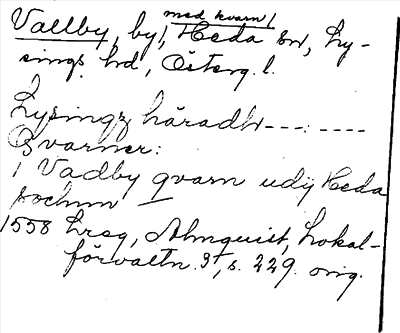 Vallby, by, med kvarn, Heda sn, Ly-
sings hd, Österg. l.
Lysingz häradh---:----
Qvarner:
1 Vadby qvarn udij Heda
sochnn —
1558 Lreg, Almquist, Lokal-
förvaltn. 3¹, s. 229. orig.